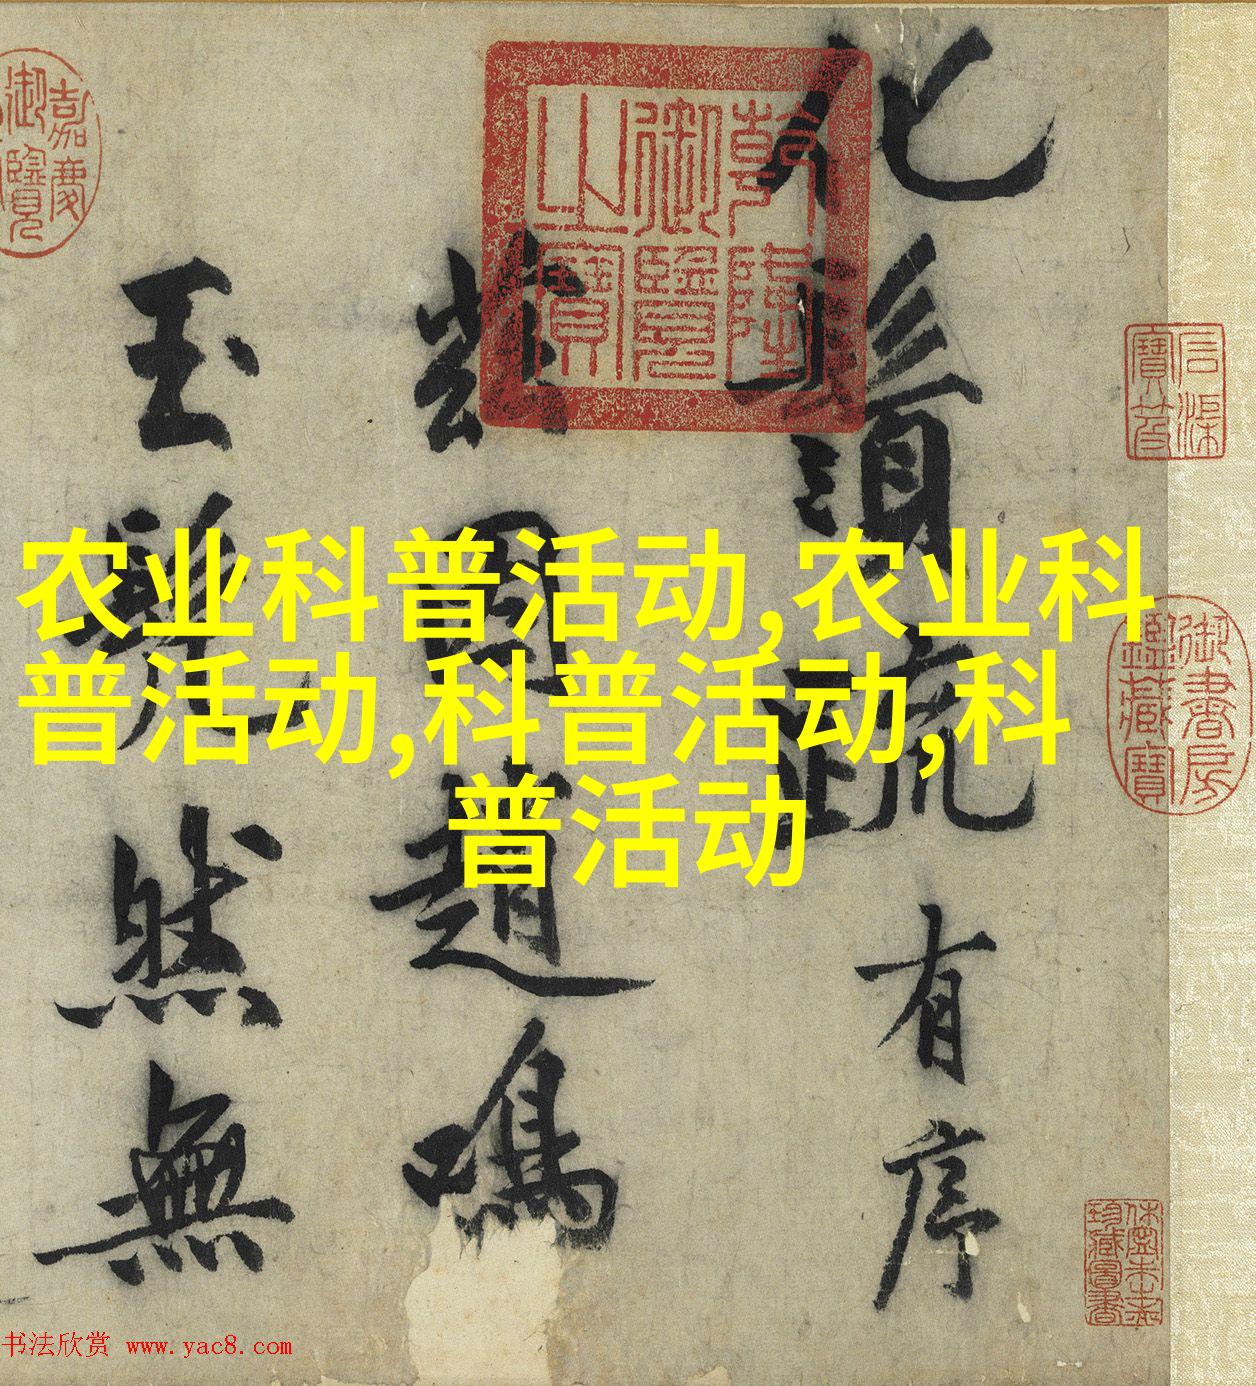 农业科普活动,农业科
普活动,科普活动,科
普活动
化鬚疏有序
茲因趙鳴
玉髡然無
乾隆
御覽
之寶
嘉慶
御覽
石渠
寶笈
御書房
鑑藏寶
休寧朱之赤
珍藏圖書
书法欣赏 www.yac8.com